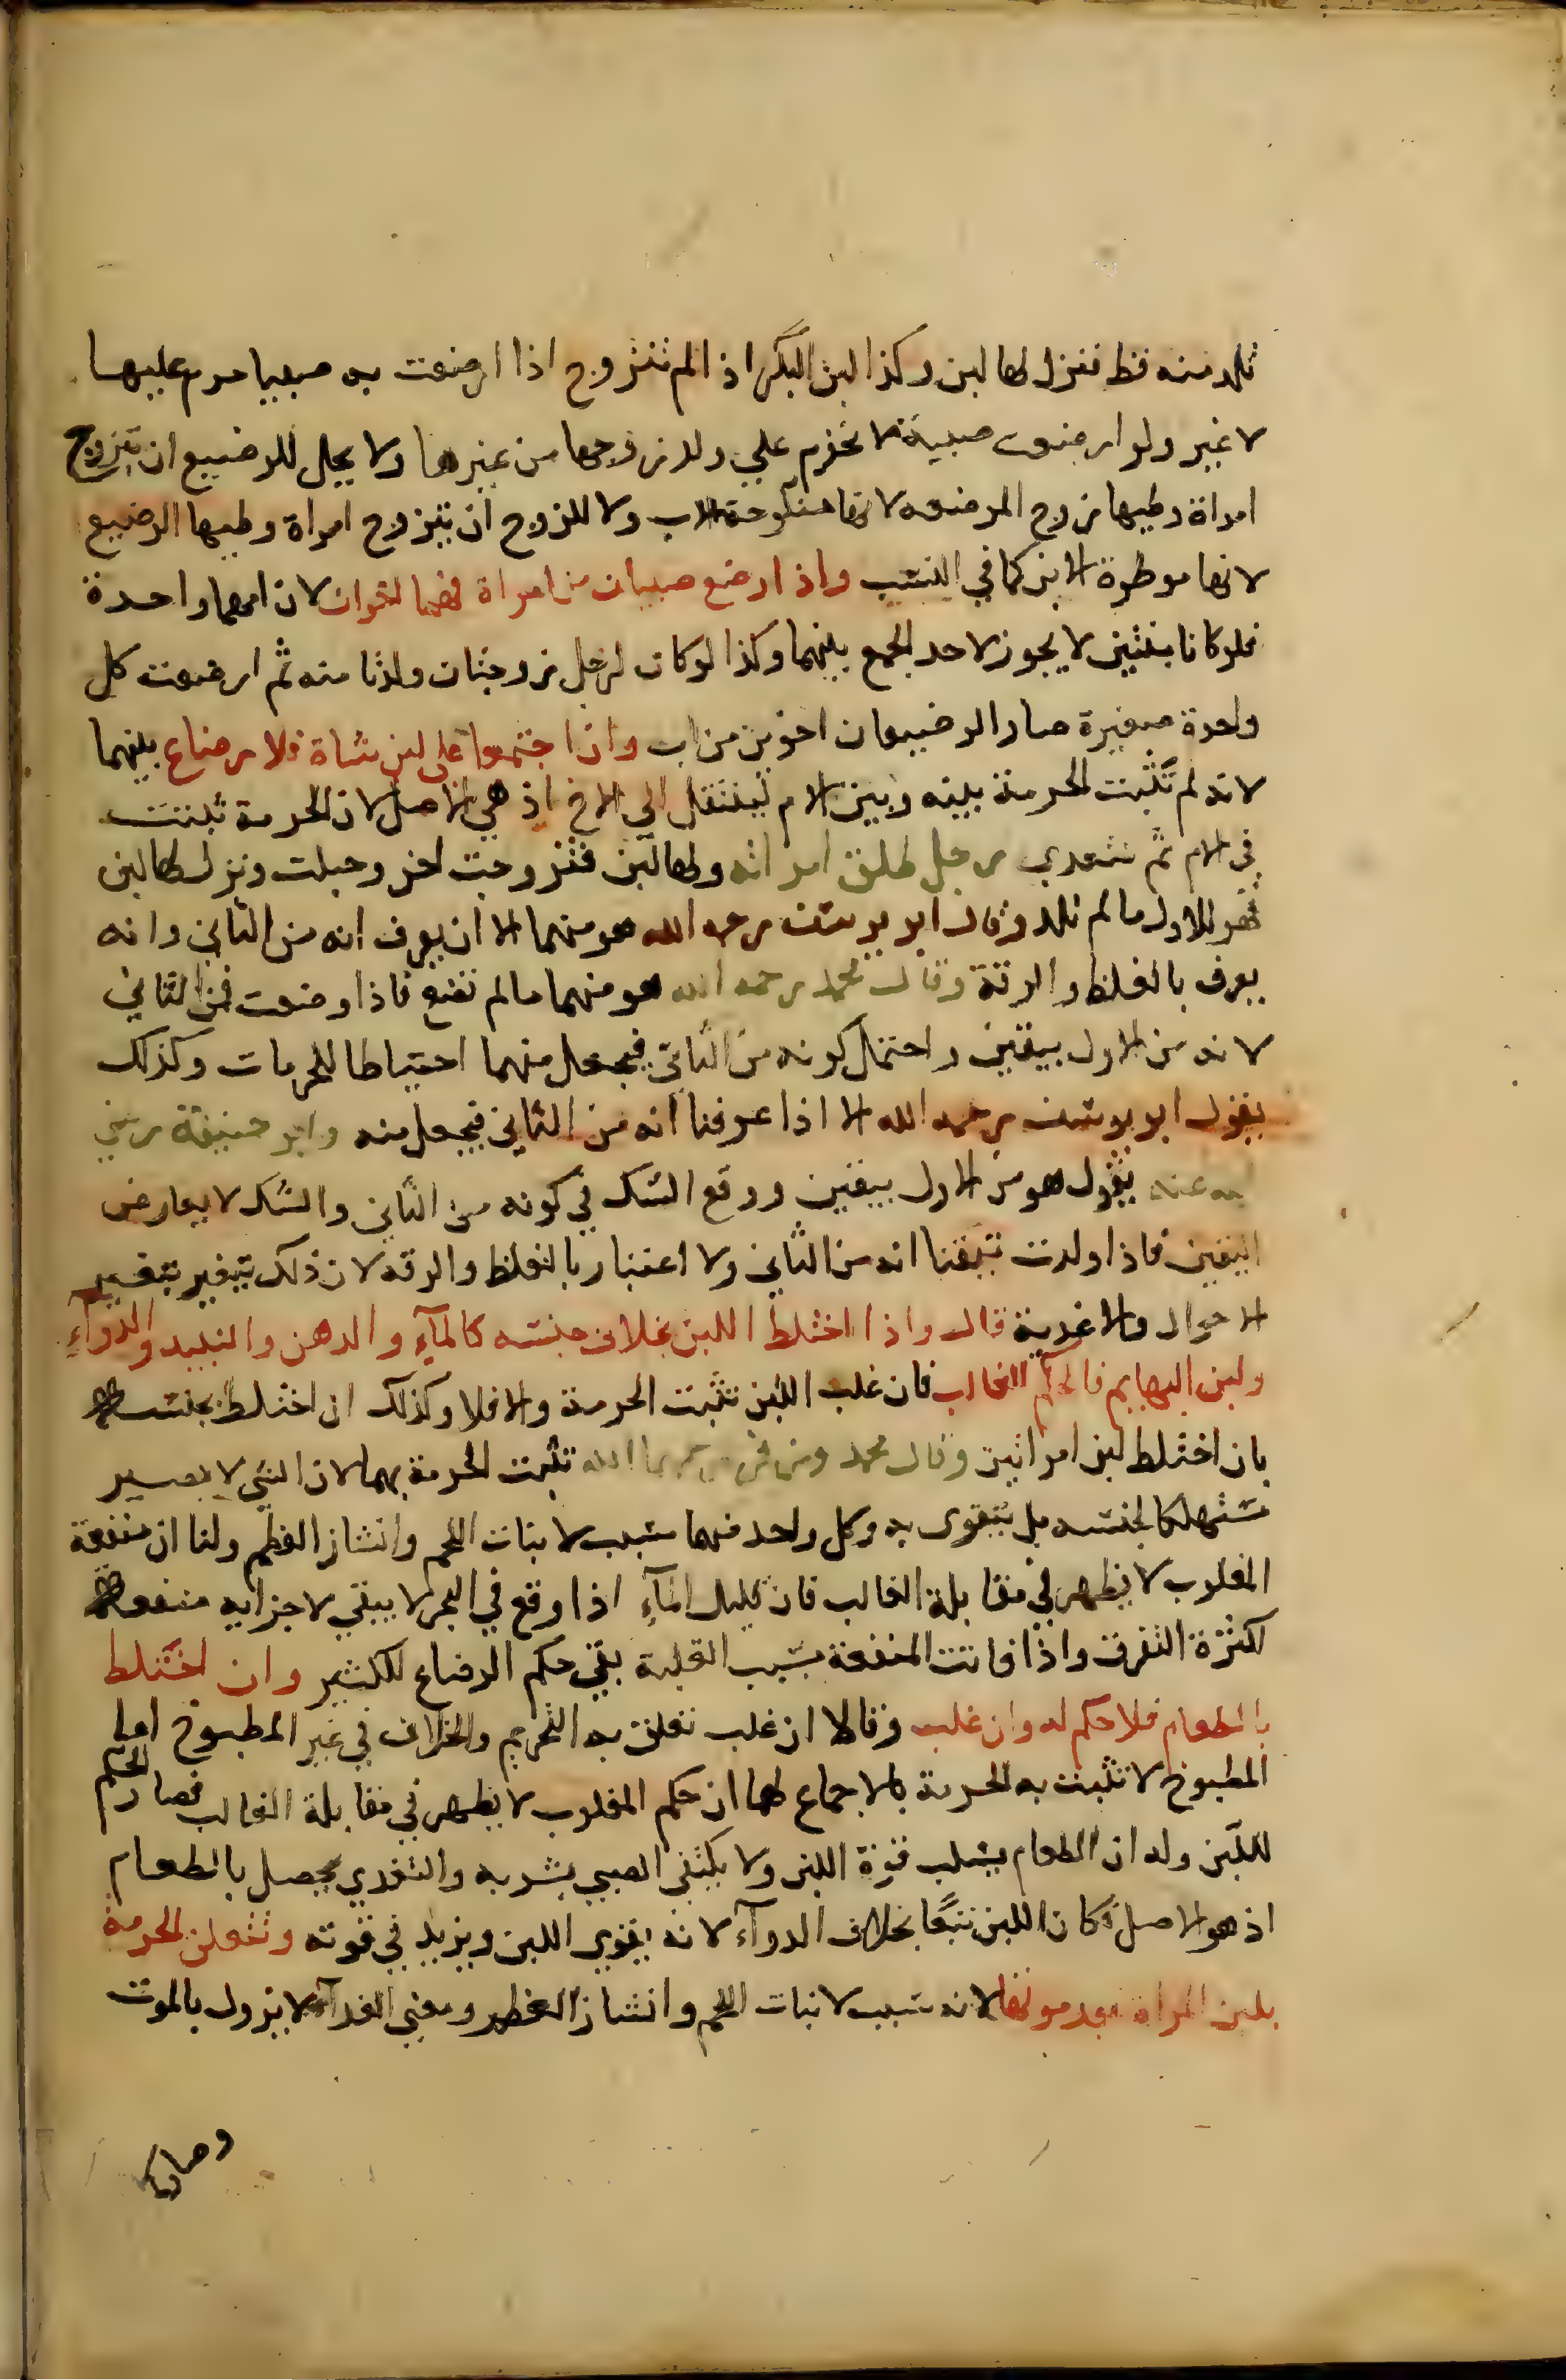 تلد منه قط فنزل لها لبن وكذا لبن البكر اذا لم تتزوج اذا ارضعت به صبيا حرم عليها
لا غير ولو ارضعت صبية لا تحرم علي ولد زوجها من غيرها ولا يحل للرضيع ان يتزوج
امراة وطيها زوج المرضعه لانها منكوحة الاب ولا للزوج ان يتزوج امراة وطيها الرضيع
لانها موطوة الابن كما في النسب واذا ارضع صبيان من امراة فهما اخوان لان امهما واحدة
فلو كانا بنتين لا يجوز لاحد الجمع بينهما وكذا لو كان لرجل زوجتان ولدتا منه ثم ارضعت كل
واحدة صغيرة صار الرضيعان اخوين من اب واذا اجتمعوا على لبن شاة فلا رضاع بينهما
لانه لم تثبت الحرمة بينه وبين الام لينتقل الي الاخ اذ هي الاصل لان الحرمة تثبت
في الام ثم تتعدي رجل طلق امراته ولها لبن فتزوجت اخر وحبلت ونزل لها لبن
فهو للاول ما لم تلد وقال ابو يوسف رحمه الله هو منهما الا ان يعرف انه من الثاني وانه
يعرف بالغلظ والرقة وقال محمد رحمه الله هو منهما ما لم تضع فاذا وضعت فمن الثاني
لانه من الاول بيقين واحتمل كونه من الثاني فيجعل منهما احتياطا للحرمات وكذلك
يقول ابو يوسف رحمه الله الا اذا عرفنا انه من الثاني فيجعل منه وابو حنيفة رضي
الله عنه يقول هو من الاول بيقين ووقع الشك في كونه من الثاني والشك لا يعارض
اليقين فاذا ولدت تيقنا انه من الثاني ولا اعتبار بالغلظ والرقه لان ذلك يتغير بتغير
الاحوال والاغدية قال واذا اختلط اللبن بخلاف جنسه كالمآء والدهن والنبيد والدوآء
ولبن البهايم فالحكم للغالب فان غلب اللبن تثبت الحرمة والا فلا وكذلك ان اختلط بجنسه
بان اختلط لبن امراتين وقال محمد وزفر رحمهما الله تثبت الحرمة بهما لان الشي لا يصير
مستهلكا لجنسه بل يتقوى به وكل واحد منهما سبب لانبات اللحم وانشاز العظم ولنا ان منفعة
المغلوب لا يظهر في مقابلة الغالب فان قليل المآء اذا وقع في البحر لا يبقي لاجزايه منفعة
لكثرة التفرق واذا فاتت المنفعة بسبب القلة بقي حكم الرضاع للكثير وان اختلط
بالطعام فلا حكم له وان غلب وقالا ان غلب تعلق به التحريم والخلاف في غير المطبوخ اما
المطبوخ لا تثبت به الحرمة بالاجماع لهما ان حكم المغلوب لا يظهر في مقابلة الغالب فصار الحكم
لللبن وله ان الطعام يسلب قوة اللبن ولا يكتفي الصبي بشربه والتغدي يحصل بالطعام
اذ هو الاصل فكان اللبن تبعا بخلاف الدوآء لانه يقوي اللبن ويزيد في قوته وتتعلق الحرمة
بلبن المراة بعد موتها لانه سبب لانبات اللحم وانشاز العظم ومعني الغدآء لا يزول بالموت
وصار كما